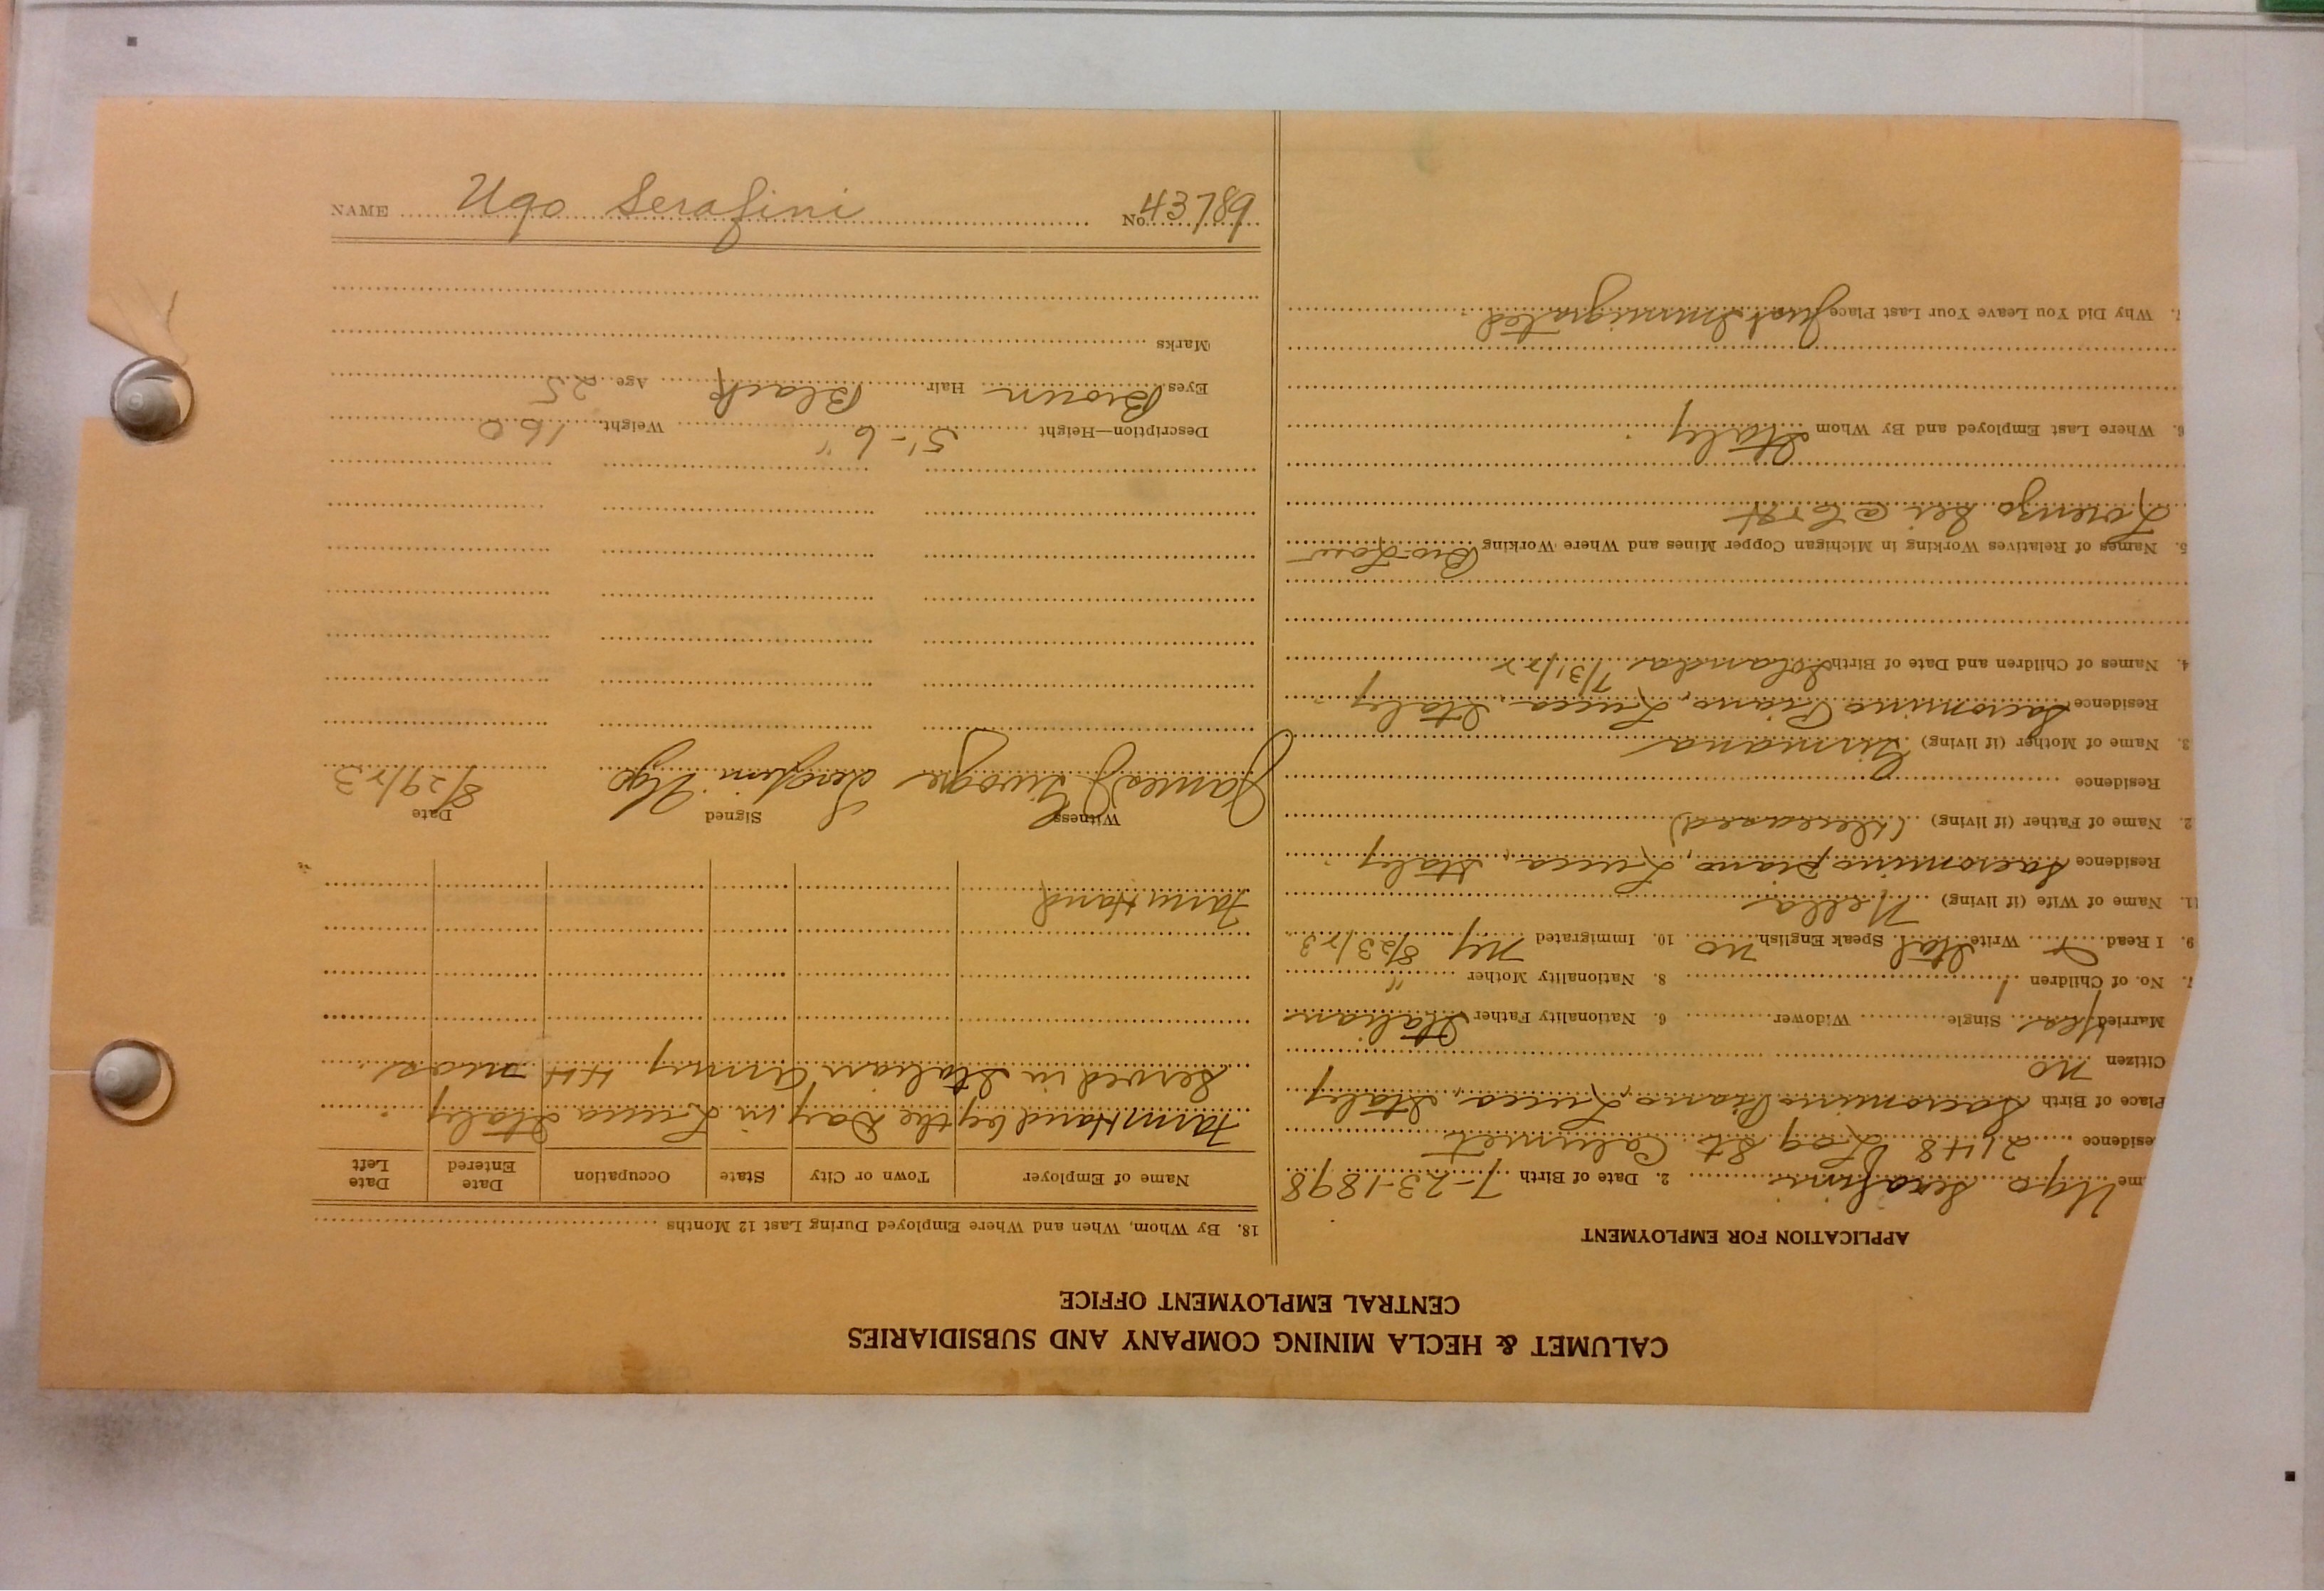 CALUMET & HECLA MINING COMPANY AND SUBSIDIARIES
CENTRAL EMPLOYMENT OFFICE
APPLICATION FOR EMPLOYMENT
me Ugo Serafini 2. Date of Birth 7-23-1898
esidence 2148 Log St. Calumet
Place of Birth Sacromino Piano, Lucca, Italy
Citizen no
Married Yes Single Widower 6. Nationality Father Italian
7. No. of Children 1 8. Nationality Mother "
9. I Read Write Ital Speak English no 10. Immigrated NY 8/23/23
11. Name of Wife (if living) Nella
Residence Sacromino Piano, Lucca, Italy
2. Name of Father (if living) (deceased)
Residence
3. Name of Mother (if living)
Residence Sacromino Piano, Lucca, Italy
4. Names of Children and Date of Birth 7/31/22
5. Names of Relatives Working in Michigan Copper Mines and Where Working Bro-Law
Lorenzo
6. Where Last Employed and By Whom Italy
7. Why Did You Leave Your Last Place Just Immigrated
18. By Whom, When and Where Employed During Last 12 Months
Name of Employer Town or City State Occupation Date Entered Date Left
Farm Hand by the Day in Lucca Italy
Served in Italian Army 44 mos.
Farm Hand
Witness Signed Date
James J Serafini Ugo 8/29/23
Description—Height 5'-6" Weight 160
Eyes Brown Hair Black Age 25
Marks
NAME Ugo Serafini No. 43789